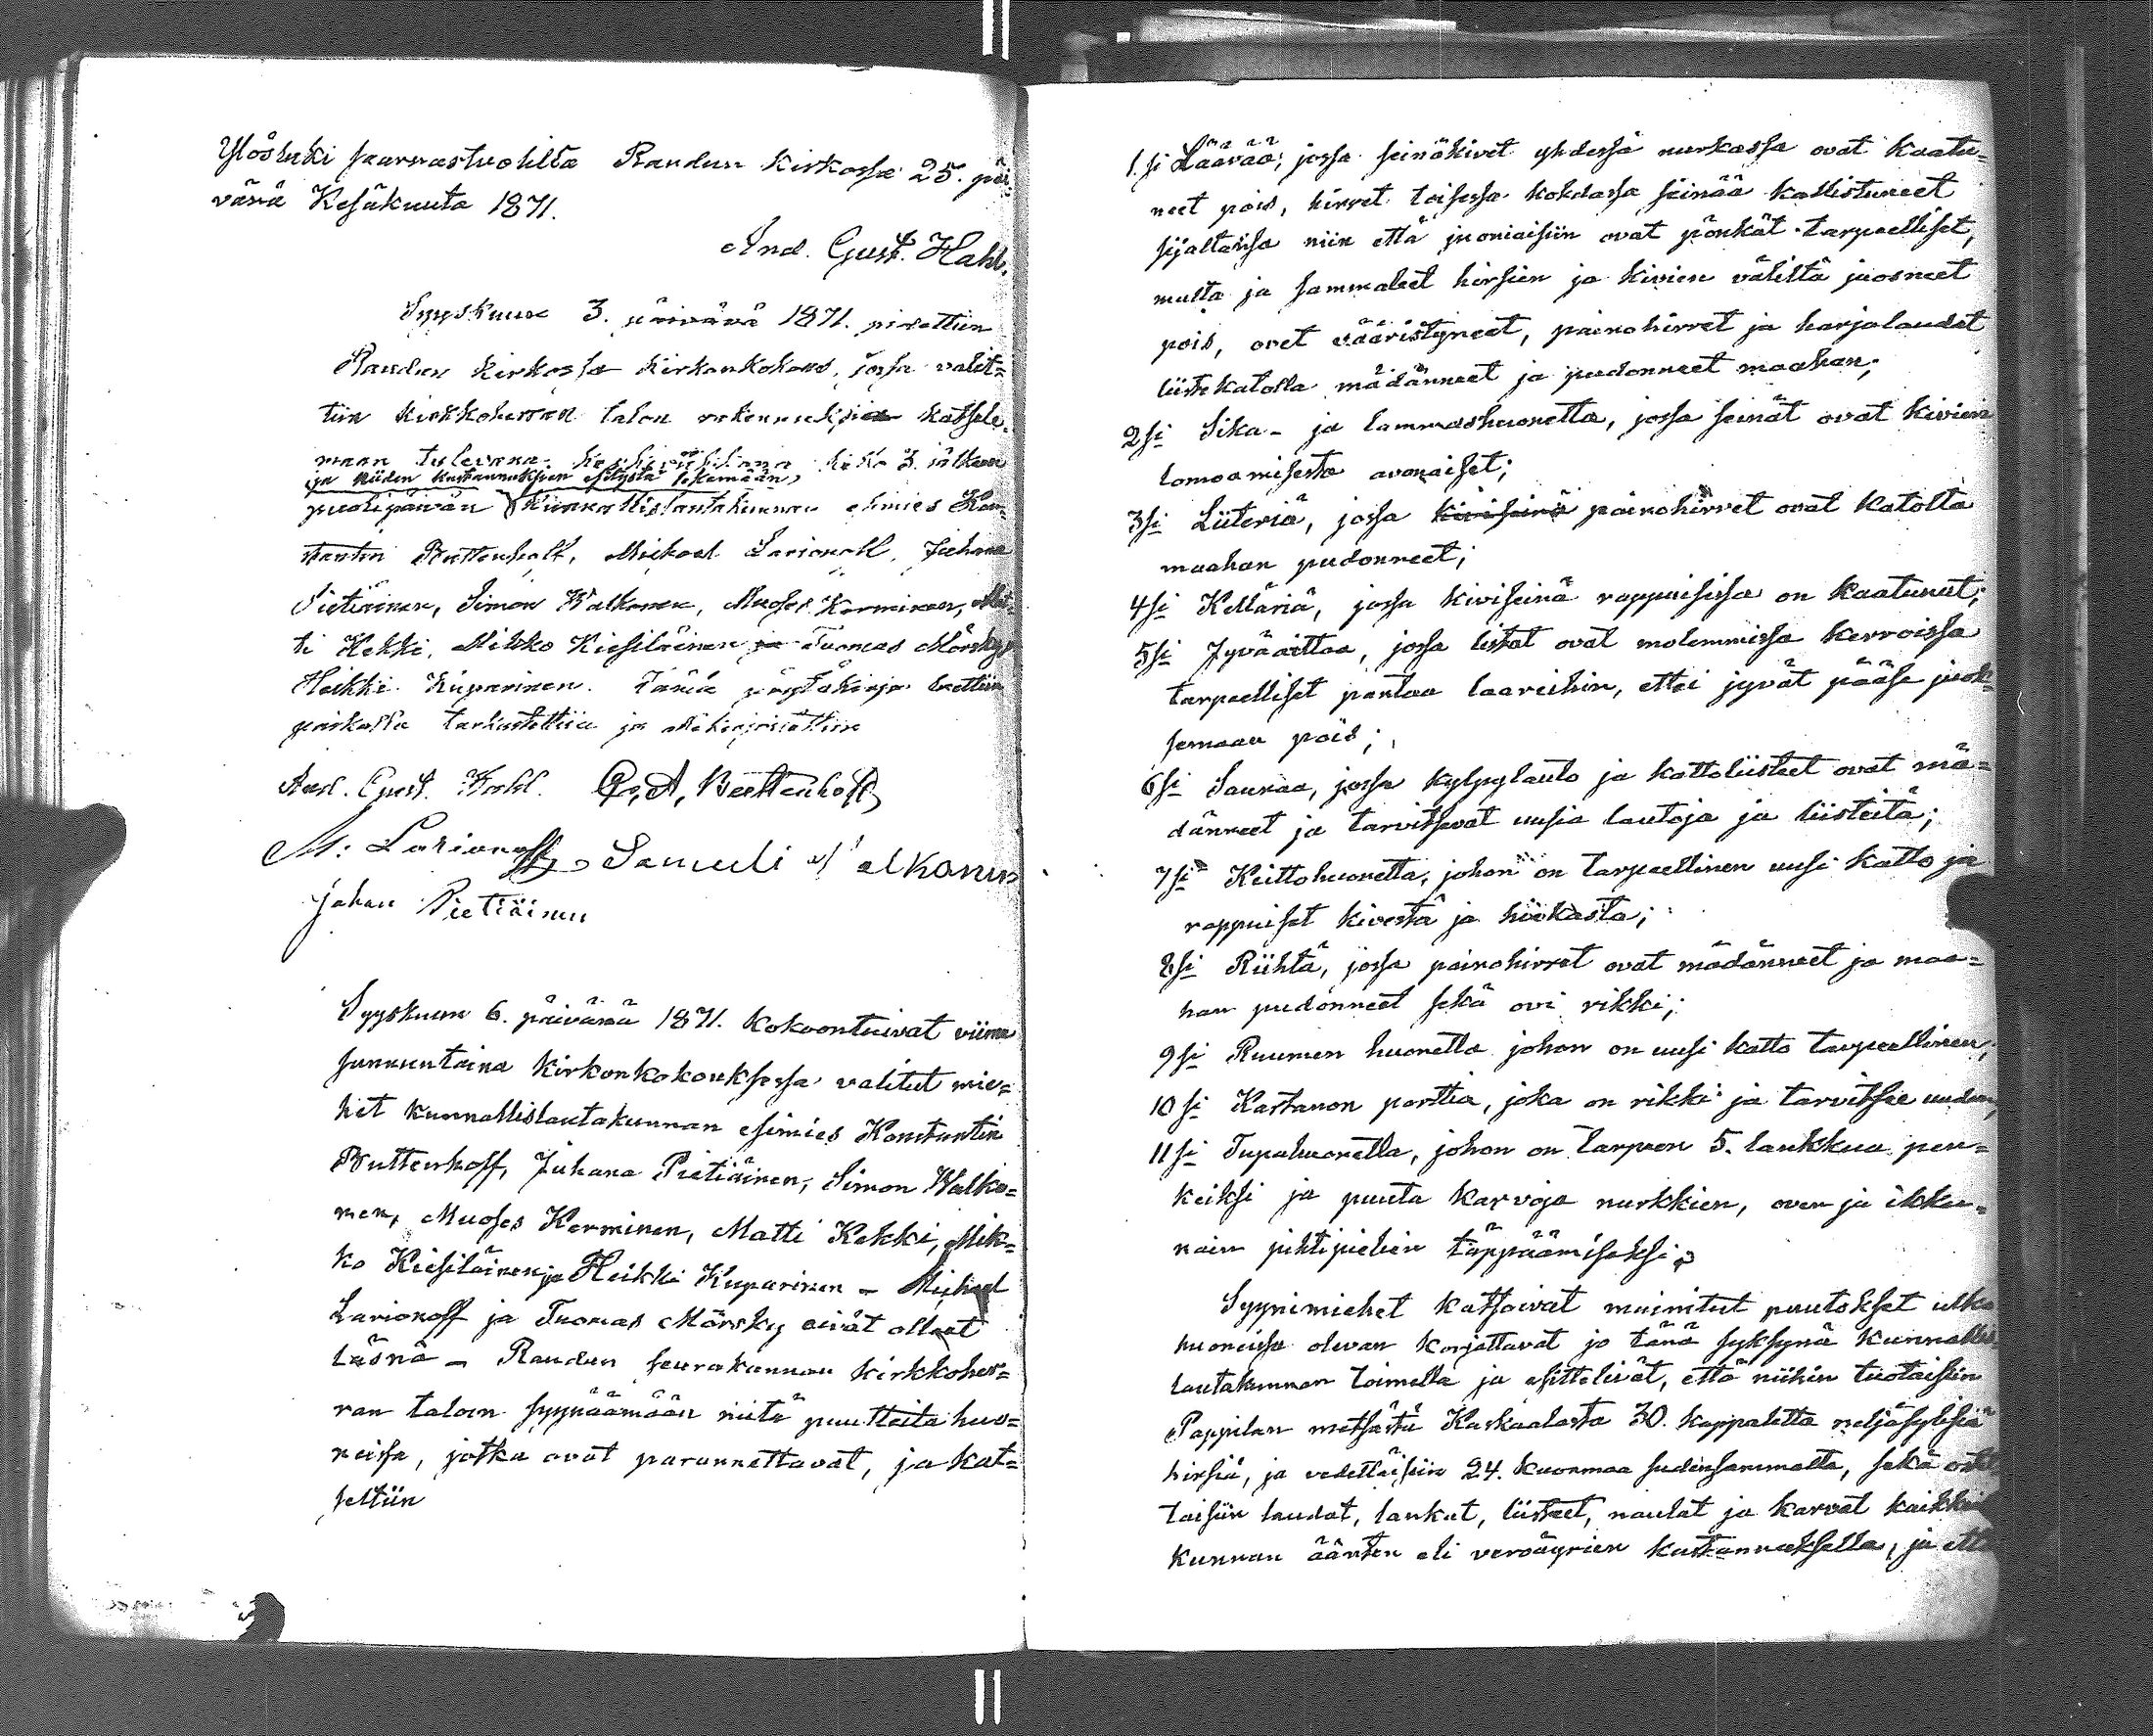 Ylösluki saarnastuolilta Raudun kirkossa 25. päi-
vänä Kesäkuuta 1871.
And. Gust. Hahl.
Syyskuun 3. päivänä 1871. pidettiin
Raudun kirkossa kirkonkokous, jossa valit=
tiin kirkkoherran talon rakennuksien katsele-
maan tulevana keskiviikkona k:lo 3. jälkeen
ja niiden kustannuksien esitystä tekemään,
puolipäivän Kunnallislautakunnan esimies Kon-
stantin Buttenhoff, Mickael Larionoff, Juhana
Pietiäinen, Simon Walkonen, Muoses Kerminen, Mat-
ti Kekki, Mikko Kiesiläinen ja Tuomas Mörsky
Heikki Kuparinen. Tämä pöytäkirja luettiin
paikalla tarkastettiin ja allekirjoitettiin
And. Gust. Hahl. C. A. Buttenhoff
M: Larionoff Samuli Walkonen
Juhan Pietiäinen
Syyskuun 6. päivänä 1871. kokoontuivat viime
sunnuntaina kirkonkokouksessa valitut mie=
het kunnallislautakunnan esimies Konstantin
Buttenhoff, Juhana Pietiäinen, Simon Walko=
nen, Muoses Kerminen, Matti Kekki, Mik=
ko Kiesiläinen ja Heikki Kuparinen - Michael
Larionoff ja Tuomas Mörsky eivät olleet
läsnä - Raudun seurakunnan kirkkoher=
ran taloon syynäämään niitä puutteita huo=
neissa, jotka ovat parannettavat, ja kat=
seltiin
1.si Läävää, jossa seinäkivet yhdessä nurkassa ovat kaatu=
neet pois, hirret toisessa kohdassa seinää kallistuneet
sijaltansa niin että juoniaisiin ovat pönkät tarpeelliset,
multa ja sammaleet hirsien ja kivien väliltä juosneet
pois, ovet vääristyneet, painohirret ja harjalaudat
liistekatolla mädänneet ja pudonneet maahan;
2si Sika- ja lammashuonetta, jossa seinät ovat kivien
lomoamisesta avonaiset;
3si Liiteriä, jossa kiviseinä painohirret ovat katolta
maahan pudonneet;
4si Kellariä, jossa kiviseinä rappuisissa on kaatunut;
5si Jyväaittaa, jossa listat ovat molemmissa kerroissa
tarpeelliset pantaa laareihin, ettei jyvät pääse juok=
semaan pois;
6si Saunaa, jossa kylpylauto ja kattoliisteet ovat mä=
dänneet ja tarvitsevat uusia lautoja ja liisteitä;
7si Keittohuonetta, johon on tarpeellinen uusi katto ja
rappuiset kivestä ja hiekasta;
8si Riihtä, jossa painohirret ovat mädänneet ja maa=
han pudonneet sekä ovi rikki;
9si Ruumen huonetta johon on uusi katto tarpeellinen,
10si Kartanon porttia, joka on rikki ja tarvitsee uuden,
11si Tupahuonetta, johon on tarpeen 5. lankkua pen=
keiksi ja puuta karvoja nurkkien, oven ja ikku=
nain pihtipielien täppäämiseksi.
Syynimiehet katsoivat mainitut puutokset ulko
huoneissa olevan korjattavat jo tänä syksynä kunnallis
lautakunnan toimella ja esittelivät, että niihin tuotaisiin
Pappilan metsästä Kaskaalasta 30. kappaletta neljäsylisiä
hirsiä, ja vedettäisiin 24. kuormaa sudensammalta, sekä ostet
taisiin laudat, lankut, liisteet, naulat ja karvat kaikki
kunnan äänten eli veroäyrien kustannuksella, ja että